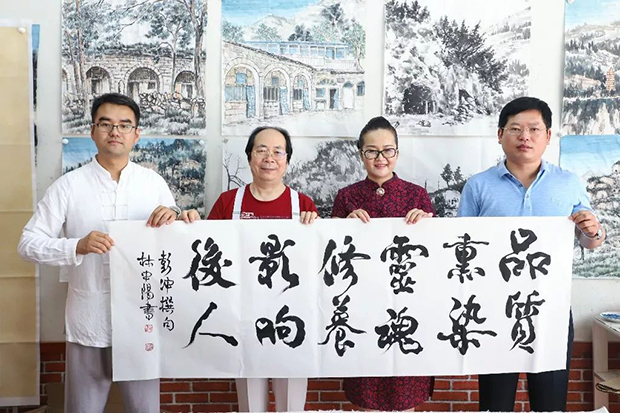 品質
熏染
靈魂
修養
影响
後人
彭冲撰句
林中陽書